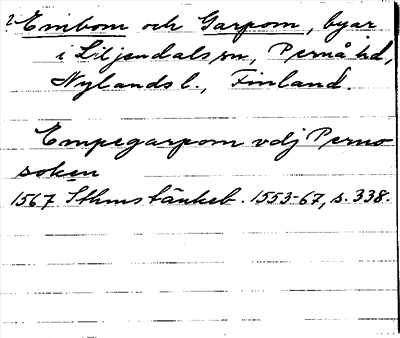 2 Embom och Garpom, byar
i Liljendals sn, Pernå hd,
Nylands l., Finland.
Empegarpom vdj Perno
soken
1567 Sthms tänkeb. 1553-67, s. 338.